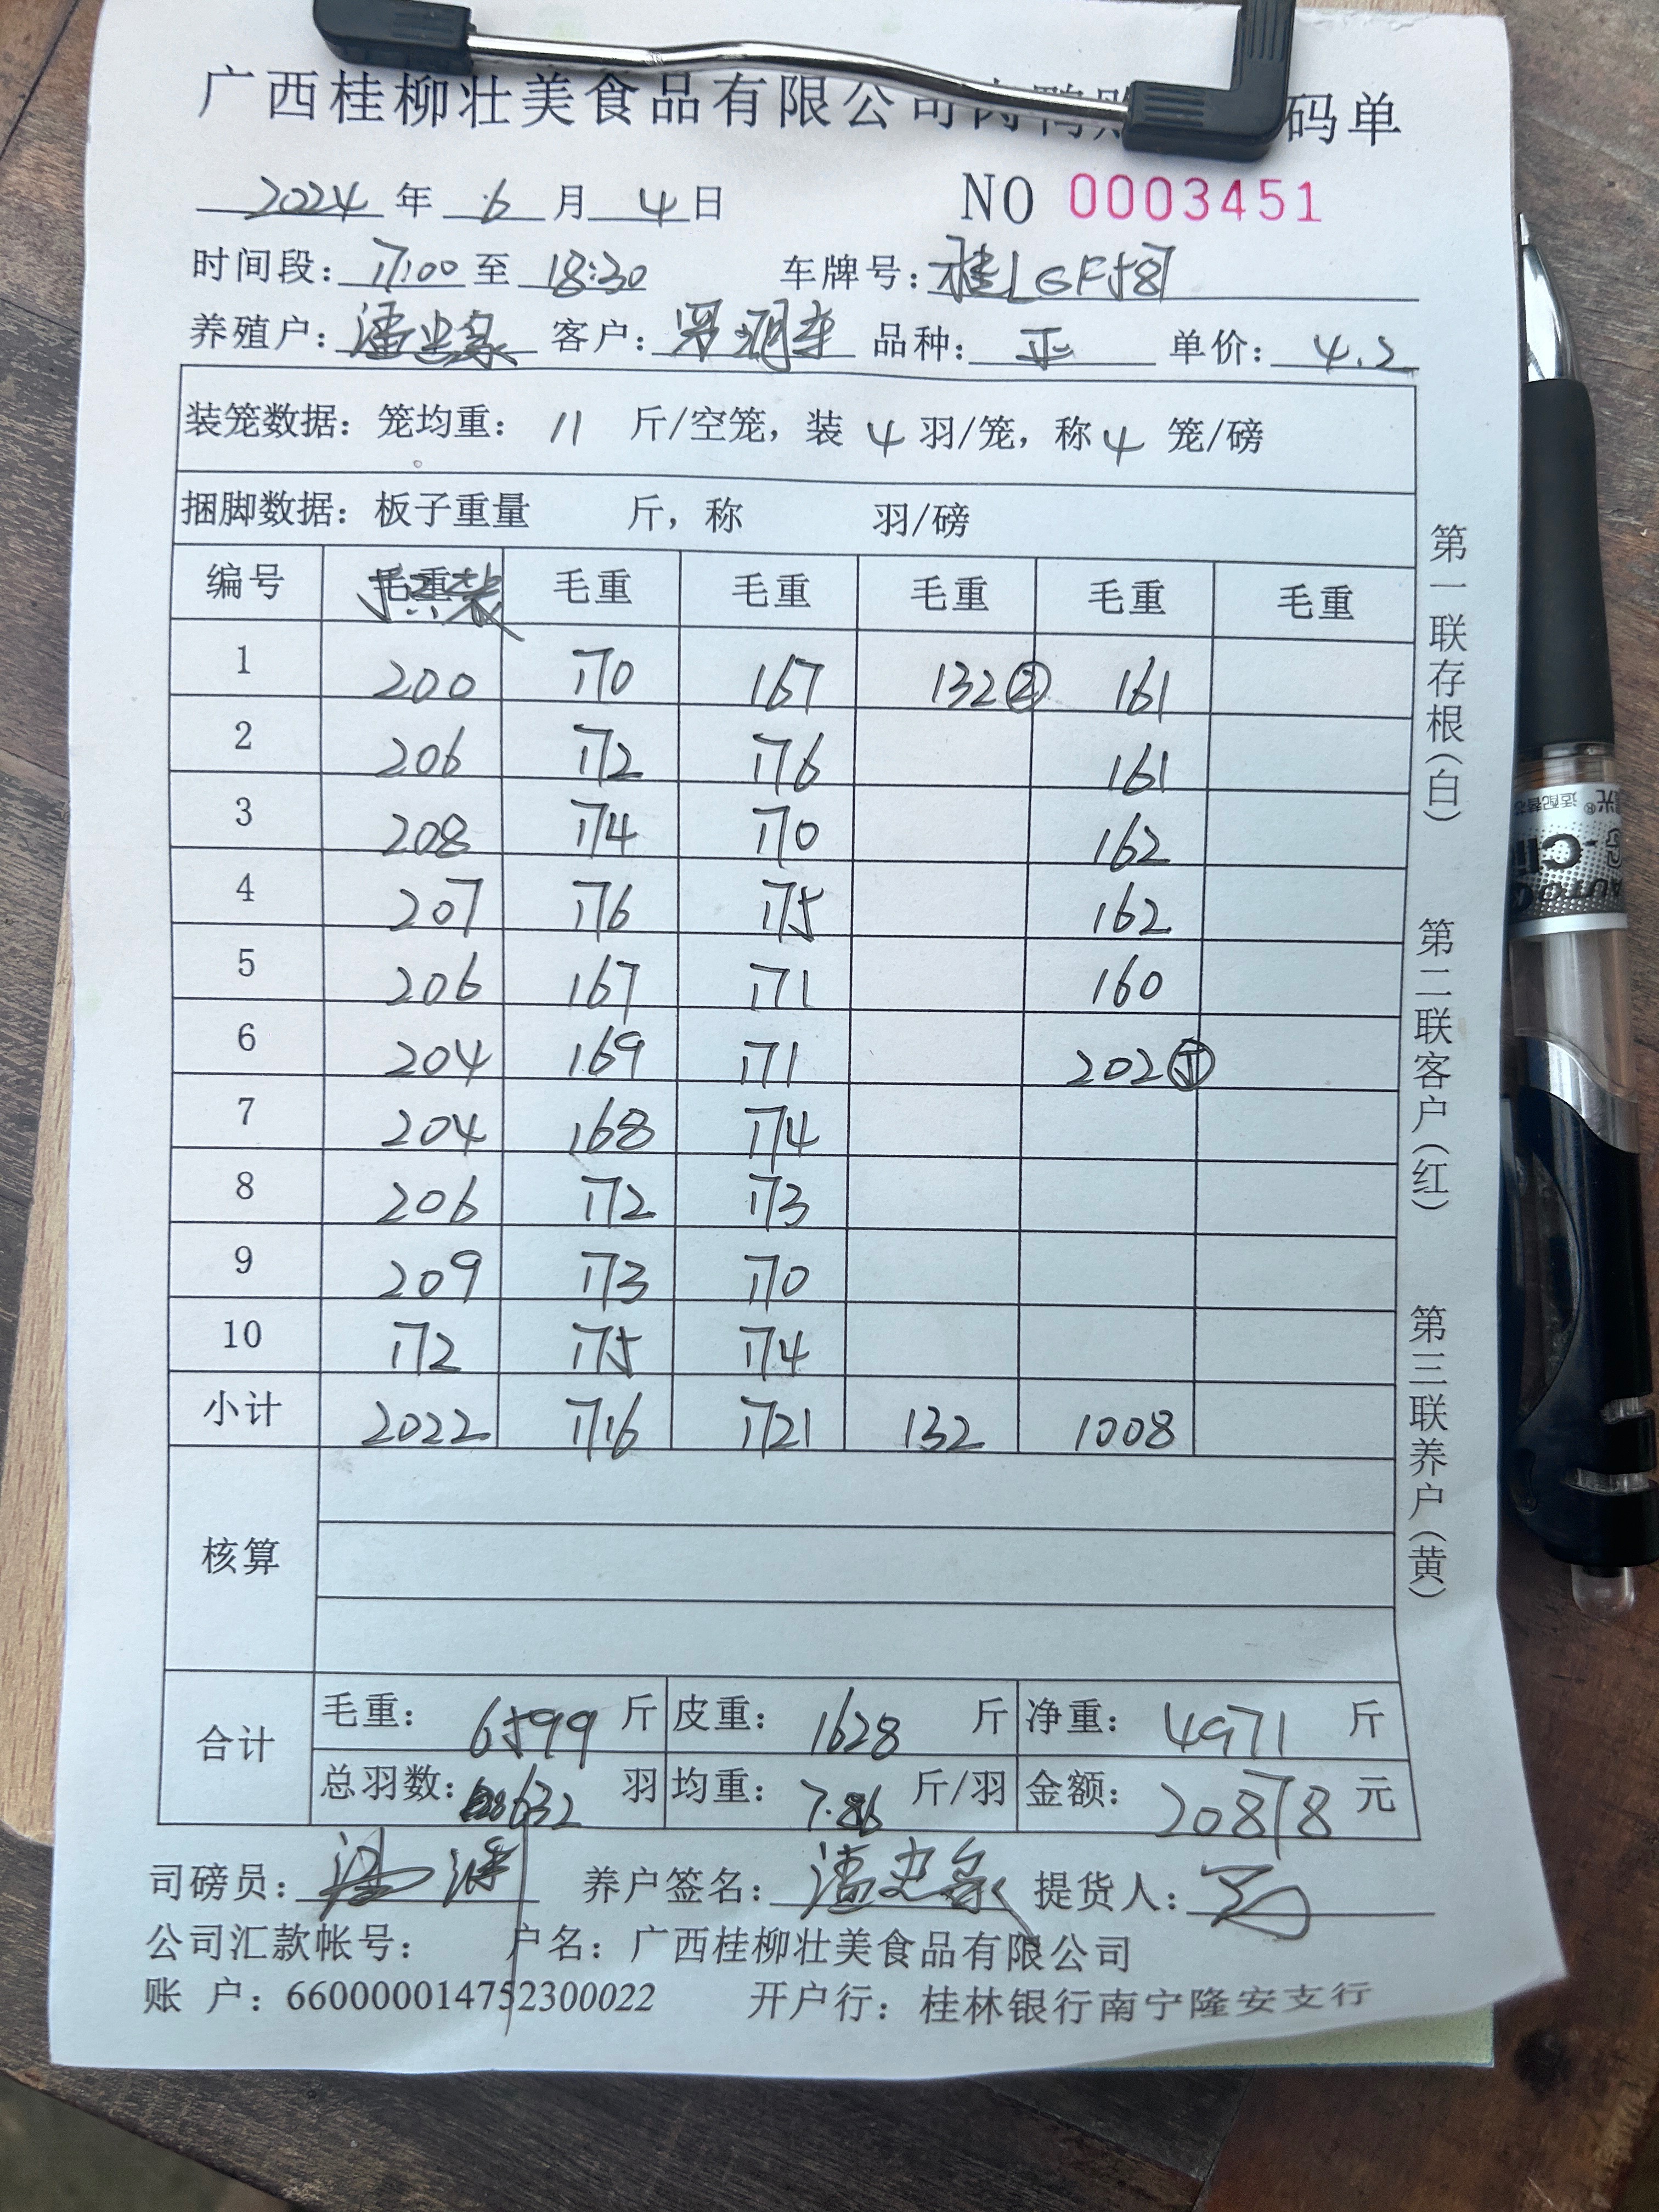 广西桂柳壮美食品有限公司肉鸭 码单
2024 年 6 月 4 日 NO 0003451
时间段: 17:00 至 18:30 车牌号: 桂LGF587
养殖户: 潘忠象 客户: 罗 品种: 正 单价: 4.2
装笼数据: 笼均重: 11 斤/空笼, 装 4 羽/笼, 称 4 笼/磅
捆脚数据: 板子重量 斤, 称 羽/磅
编号 毛重 毛重 毛重 毛重 毛重 毛重
1 200 170 167 132② 161
2 206 172 176 161
3 208 174 170 162
4 207 176 175 162
5 206 167 171 160
6 204 169 171 202⑤
7 204 168 174
8 206 172 173
9 209 173 170
10 172 175 174
小计 2022 1716 1721 132 1008
核算
合计 毛重: 6599 斤 皮重: 1628 斤 净重: 4971 斤
总羽数: 632 羽 均重: 7.86 斤/羽 金额: 20878 元
司磅员: 养户签名: 潘忠象 提货人:
公司汇款帐号: 户名: 广西桂柳壮美食品有限公司
账 户: 660000014752300022 开户行: 桂林银行南宁隆安支行
第一联存根(白)
第二联客户(红)
第三联养户(黄)